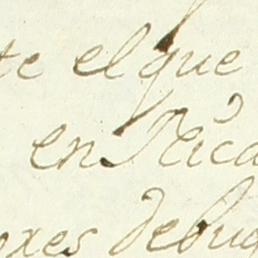 te el que
en Reca
oxes debug